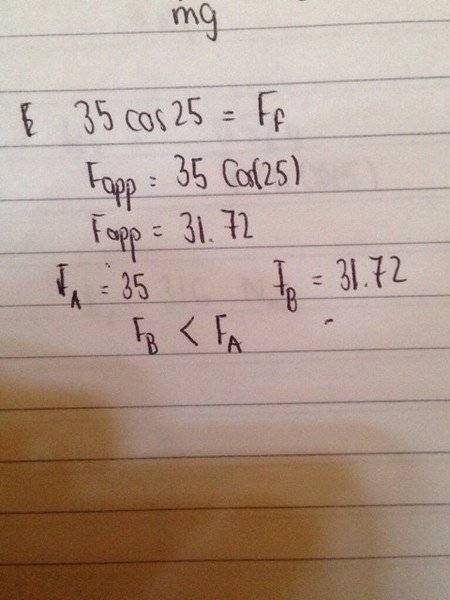 mg
E 35 cos 25 = Ff
Fapp = 35 Cos(25)
Fapp = 31.72
FA = 35 FB = 31.72
FB < FA